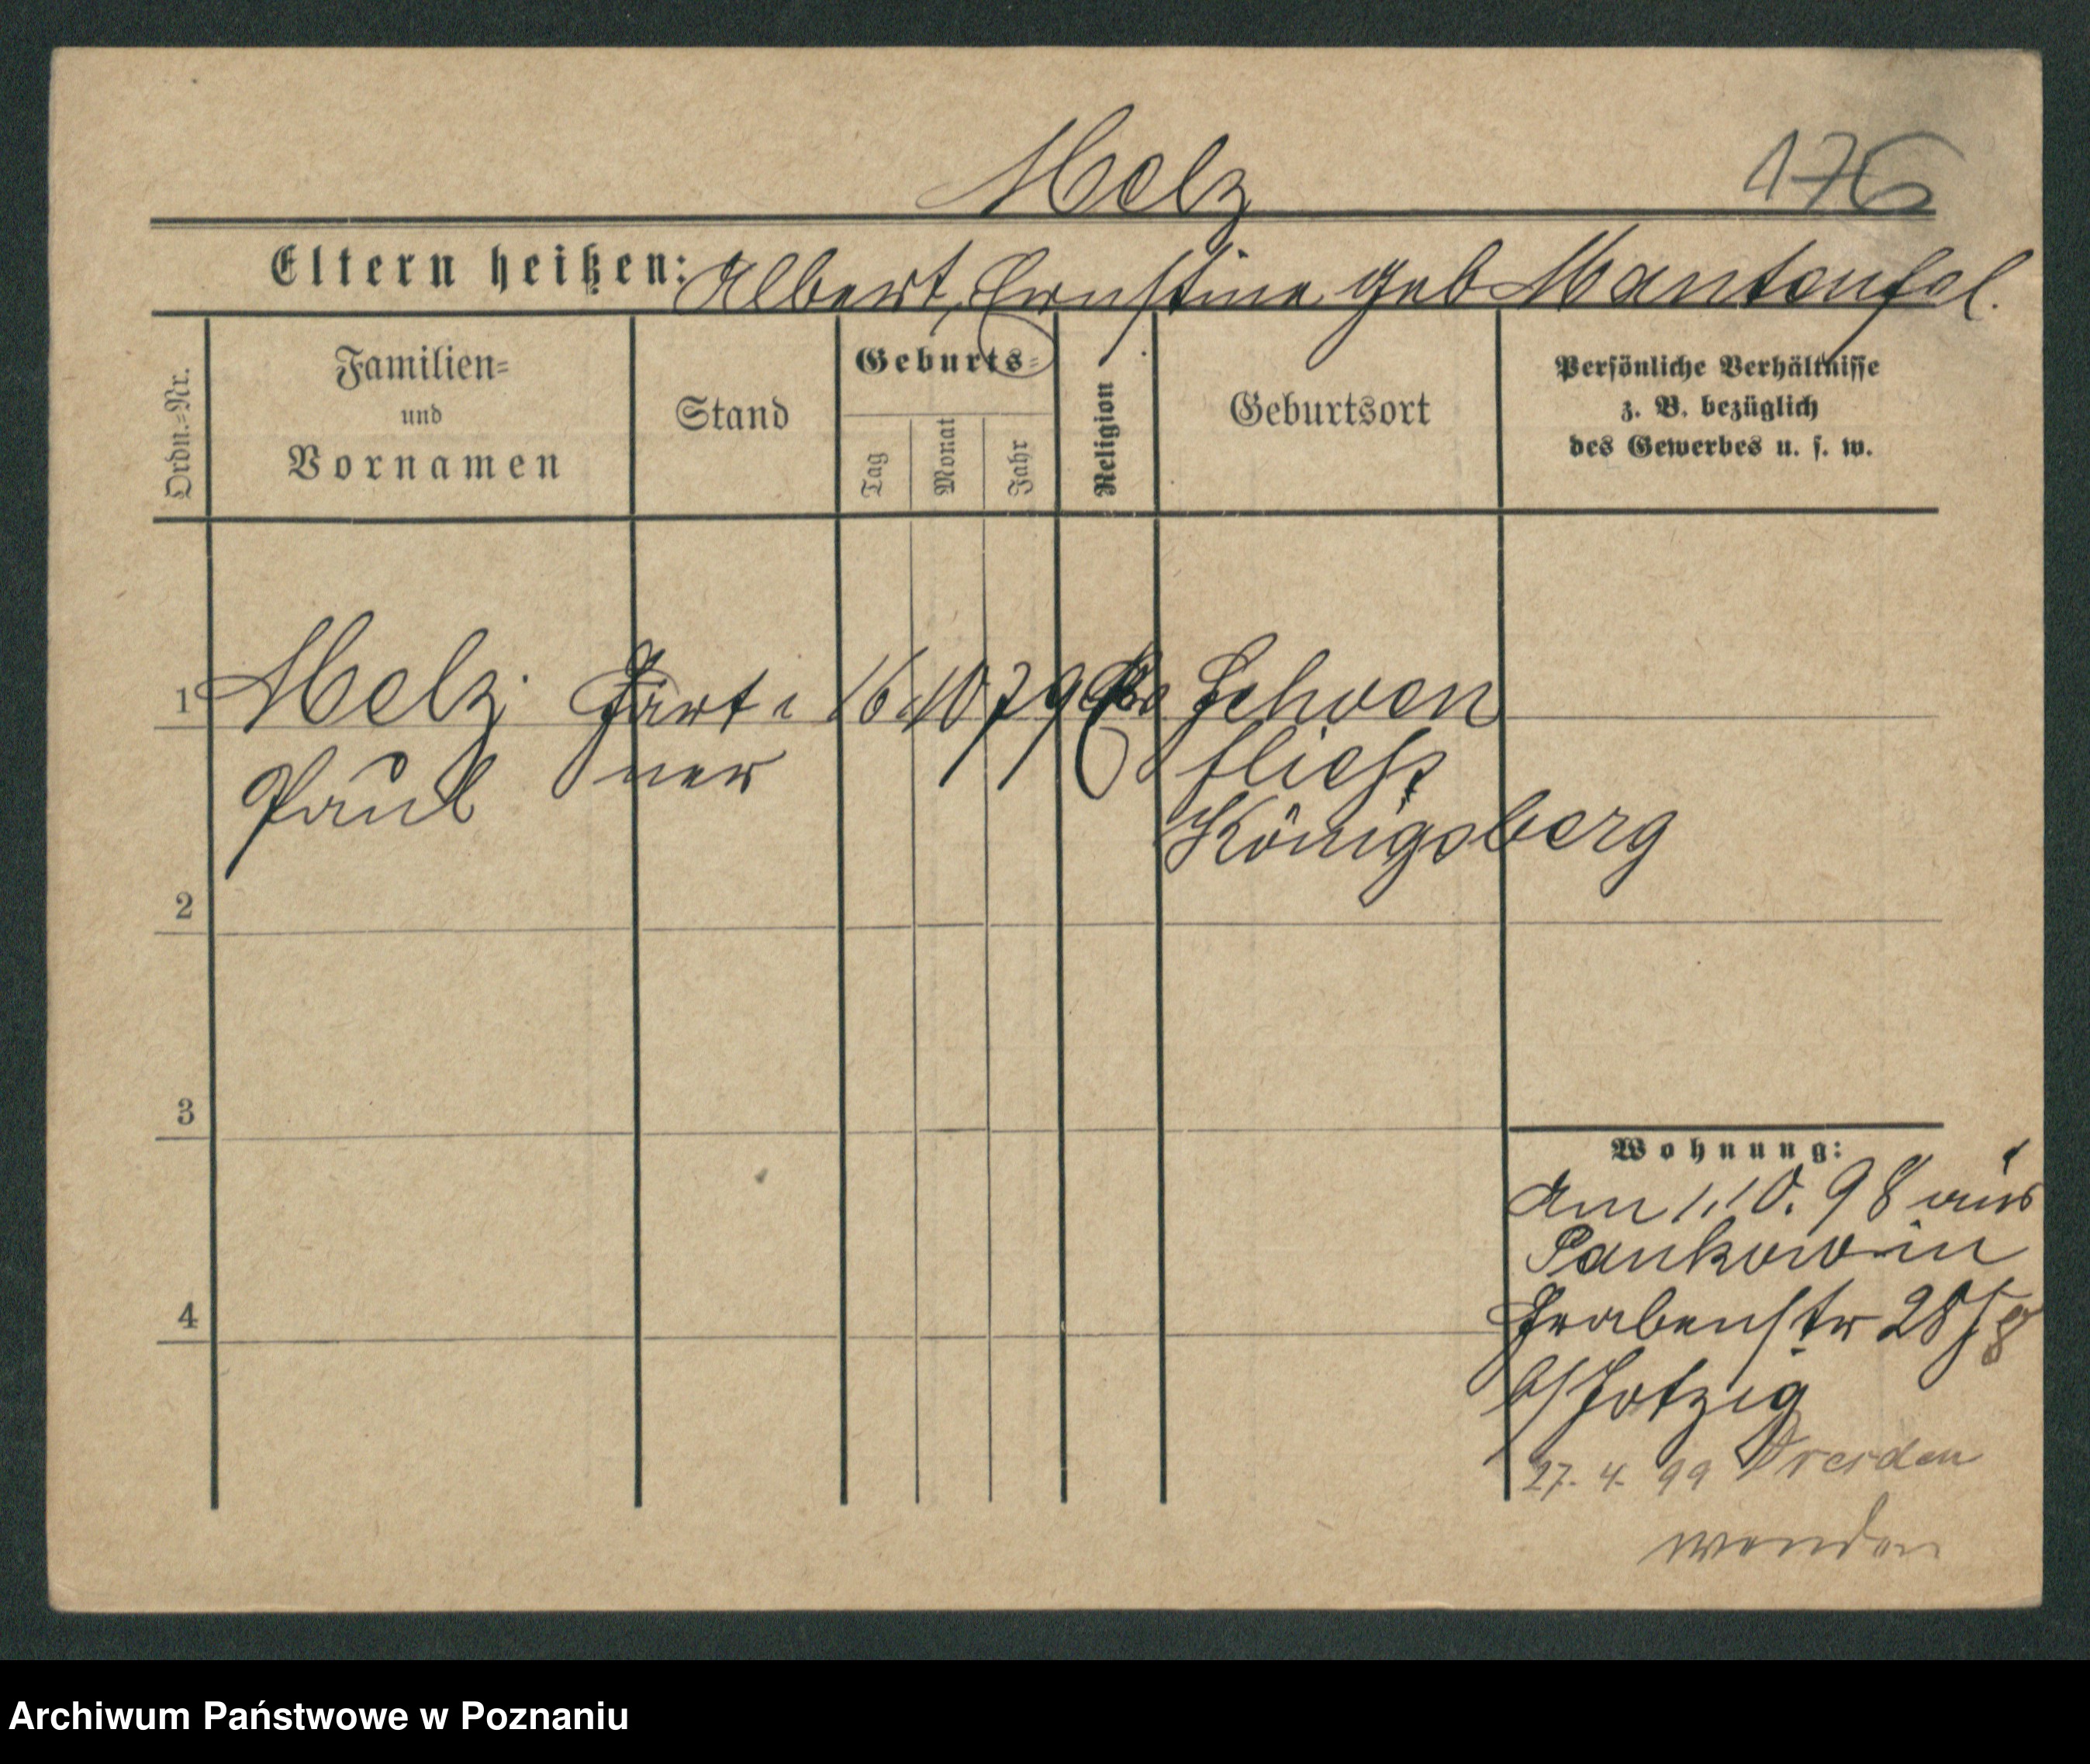 Melz
176
Eltern heißen: Albert, Ernstine geb Manteufel.
Ordn.=Nr.
Familien=
und
Vornamen
Stand
Geburts=
Tag
Monat
Jahr
Religion
Geburtsort
Persönliche Verhältnisse
z. B. bezüglich
des Gewerbes u. s. w.
1 Melz Gärt= 16 10 79 Schoen
Paul ner fließ
Königsberg
2
3
4
Wohnung:
Am 1.10.98 aus
Pankow in
Grabenstr 28
b/
27. 4. 99 Dresden
wenden
Archiwum Państwowe w Poznaniu